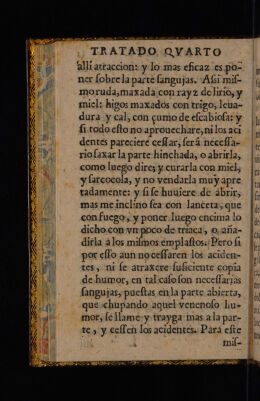 TRATADO QVARTO
alli atraccion: y lo mas eficaz es po-
ner sobre la parte sangujas. Asi mis-
mo ruda, maxada con rayz de lirio, y
miel: higos maxados con trigo, leua-
dura y cal, con çumo de escabiosa: y
si todo esto no aprouechare, ni los aci
dentes pareciere cessar, será necessa-
rio saxar la parte hinchada, o abrirla,
como luego dire, y curarla con miel,
y sarcocola, y no vendarla muy apre
tadamente: y si se huuiere de abrir,
mas me inclino sea con lanceta, que
con fuego, y poner luego encima lo
dicho con vn poco de triaca, o aña-
dirla a los mismos emplastos. Pero si
por esso aun no cessaren los aciden-
tes, ni se atraxere suficiente copia
de humor, en tal caso son necessarias
sangujas, puestas en la parte abierta,
que chupando aquel venenoso hu-
mor, se llame y trayga mas a la par-
te, y cessen los acidentes. Para este
mis-